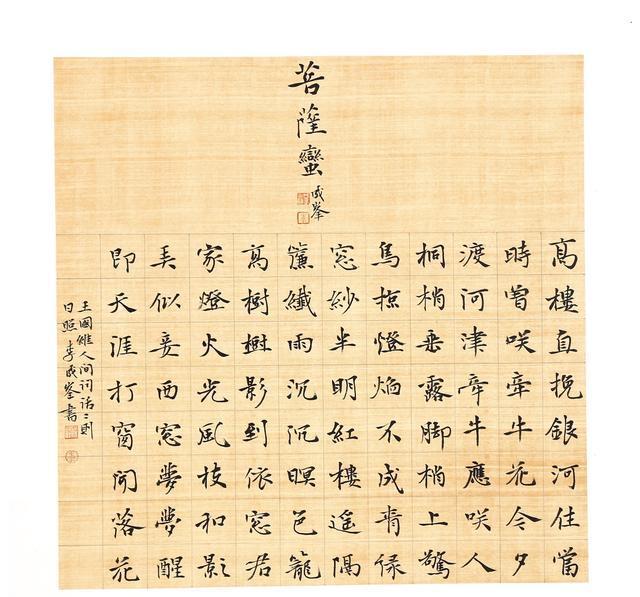 菩薩蠻
成峯
高樓直挽銀河住當
時曾咲牽牛處今夕
渡河津牽牛應咲人
桐梢垂露脚梢上驚
烏掠燈焰不成青緑
窓紗半明紅樓遥隔
簾纖雨沉沉暝色籠
高樹樹影到依窓君
家燈火光風枝和影
弄似妾西窓夢夢醒
即天涯打窗聞落花
王國維人间词话二則
日照李成峯書